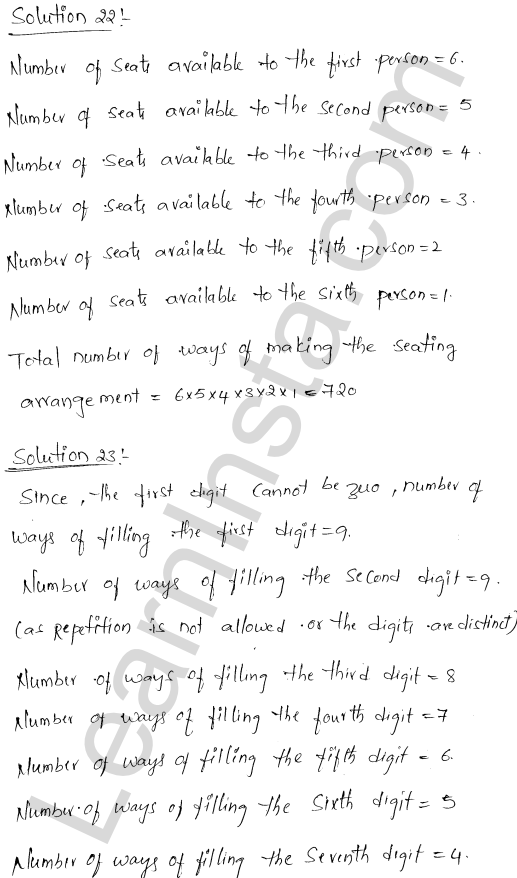 Solution 22:-
Number of seats available to the first person = 6.
Number of seats available to the second person = 5
Number of seats available to the third person = 4.
Number of seats available to the fourth person = 3.
Number of seats available to the fifth person = 2
Number of seats available to the sixth person = 1.
Total number of ways of making the seating
arrangement = 6×5×4×3×2×1 = 720
Solution 23:-
Since, the first digit cannot be zero, number of
ways of filling the first digit = 9.
Number of ways of filling the second digit = 9.
(as repetition is not allowed or the digits are distinct)
Number of ways of filling the third digit = 8
Number of ways of filling the fourth digit = 7
Number of ways of filling the fifth digit = 6.
Number of ways of filling the sixth digit = 5
Number of ways of filling the seventh digit = 4.
LearnInsta.com